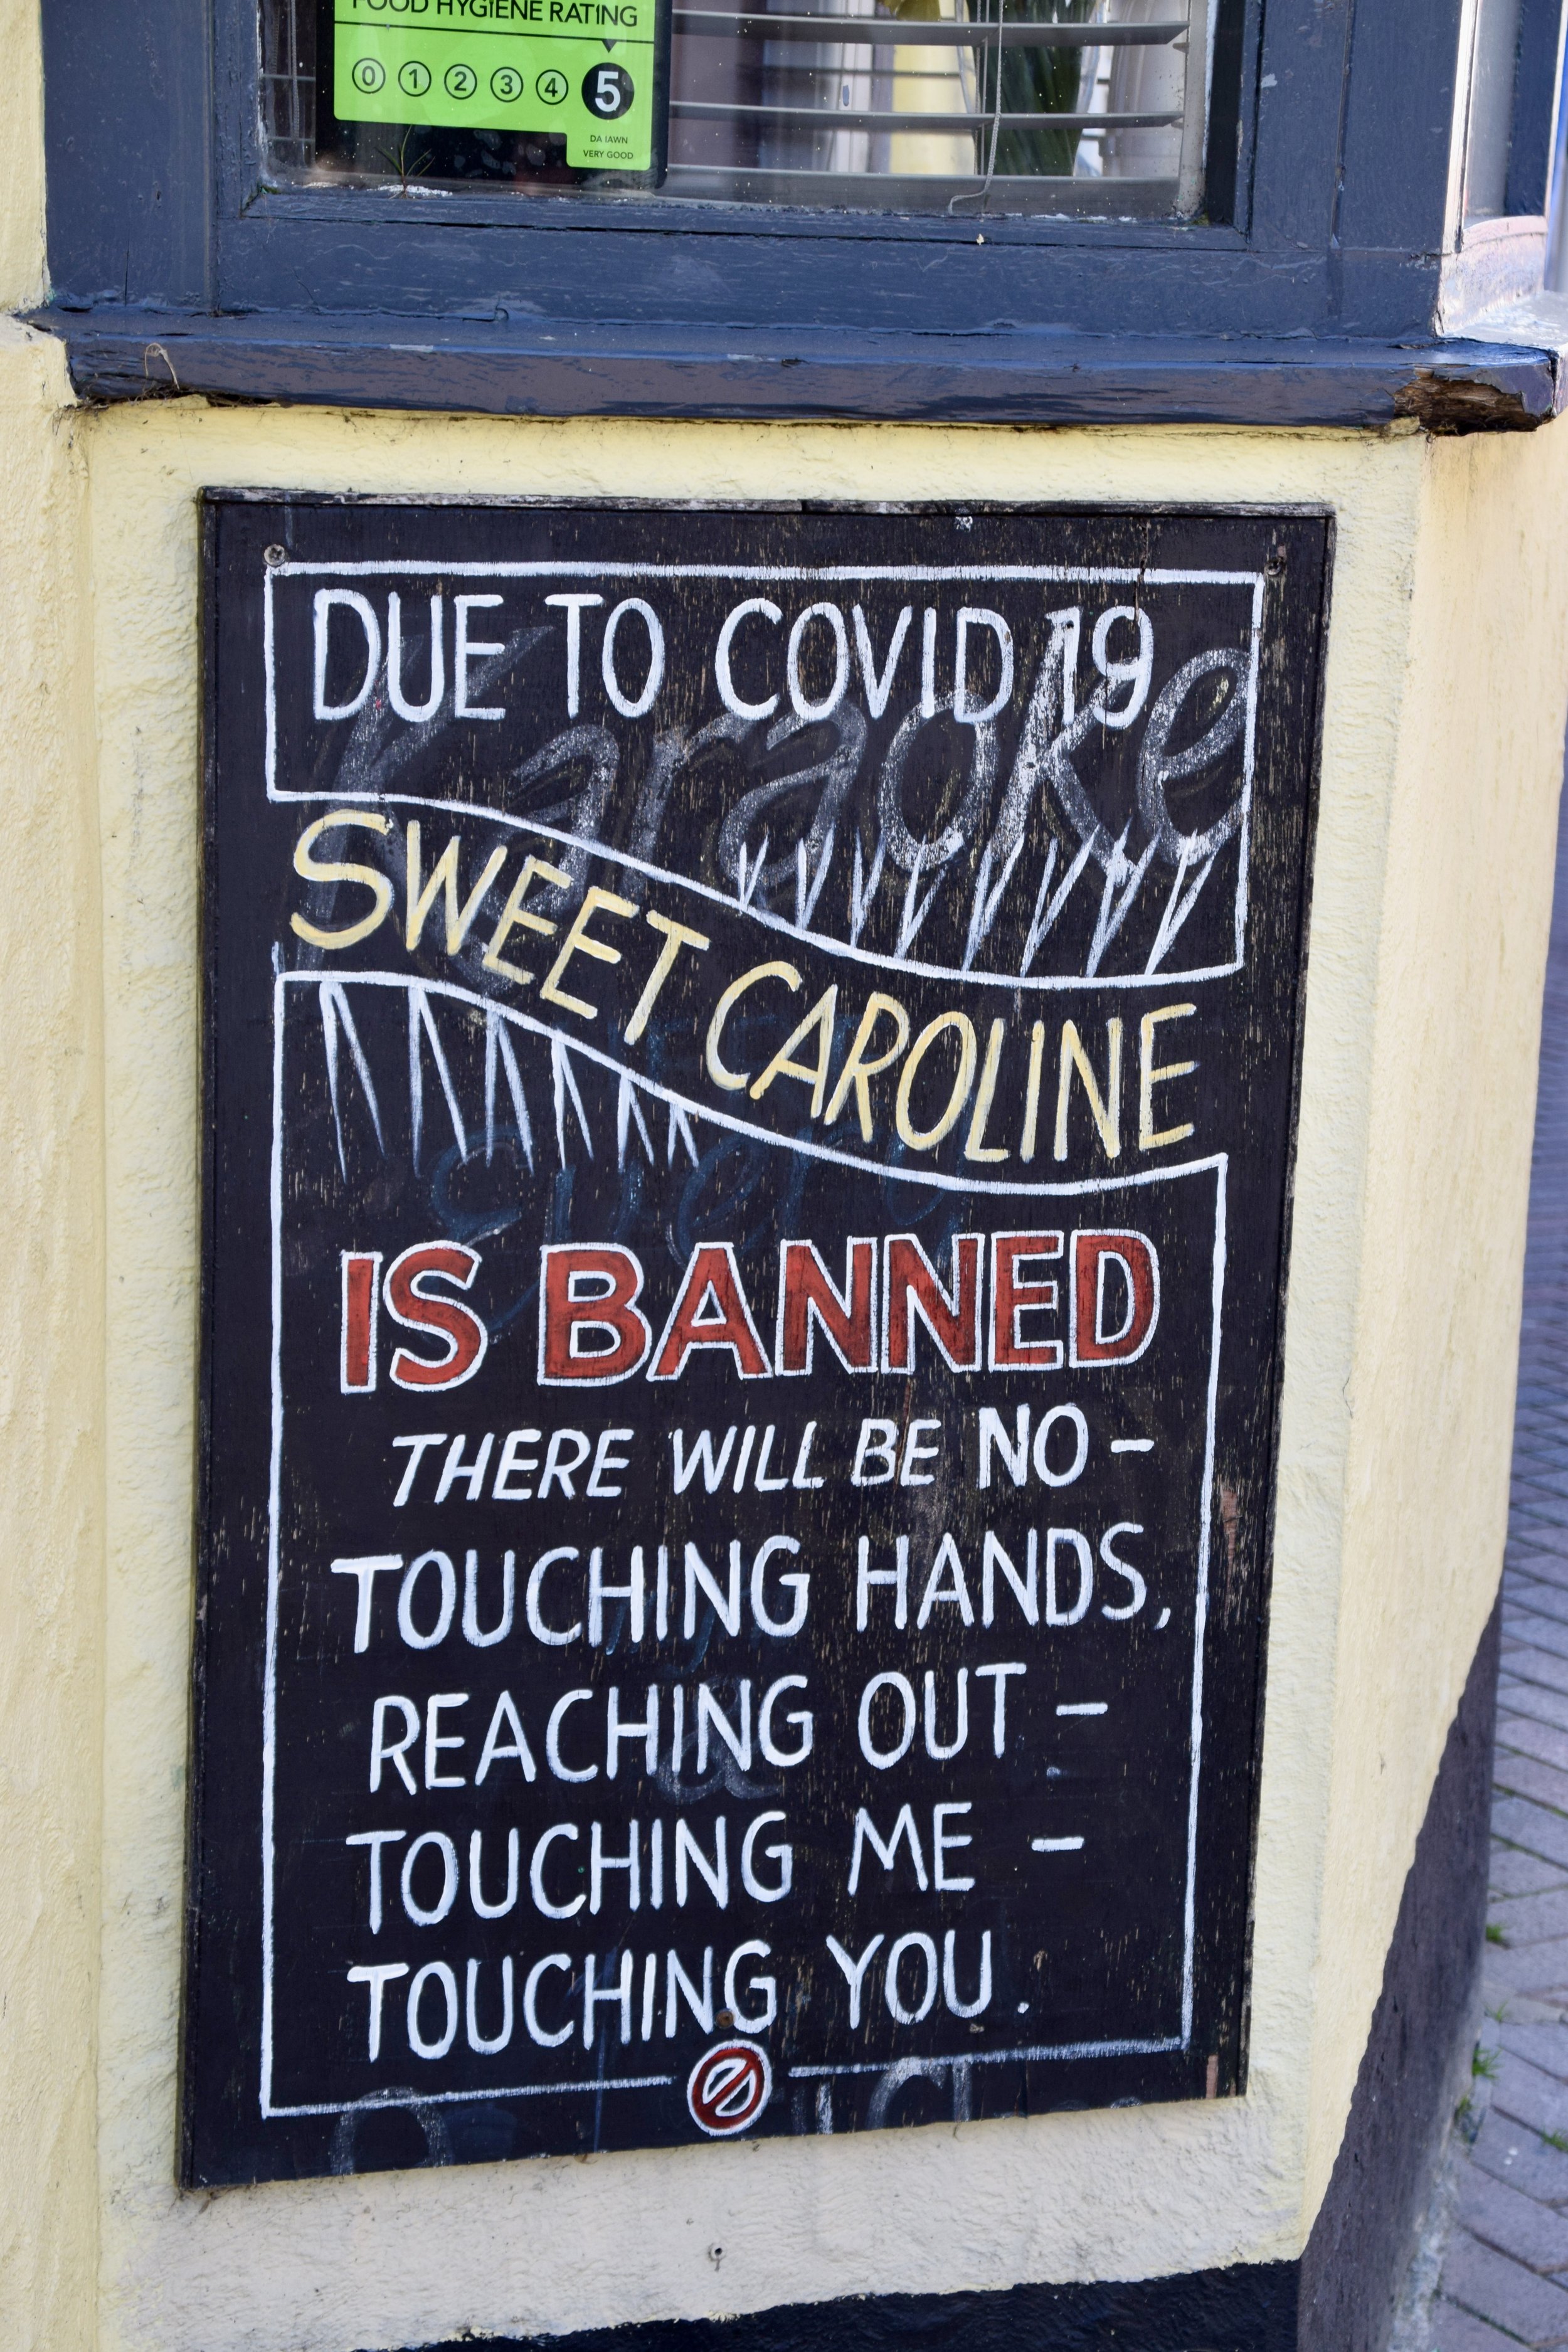 FOOD HYGIENE RATING
0 1 2 3 4 5
DA IAWN
VERY GOOD
DUE TO COVID 19
Karaoke
SWEET CAROLINE
every
IS BANNED
THERE WILL BE NO -
TOUCHING HANDS,
REACHING OUT -
TOUCHING ME -
TOUCHING YOU.